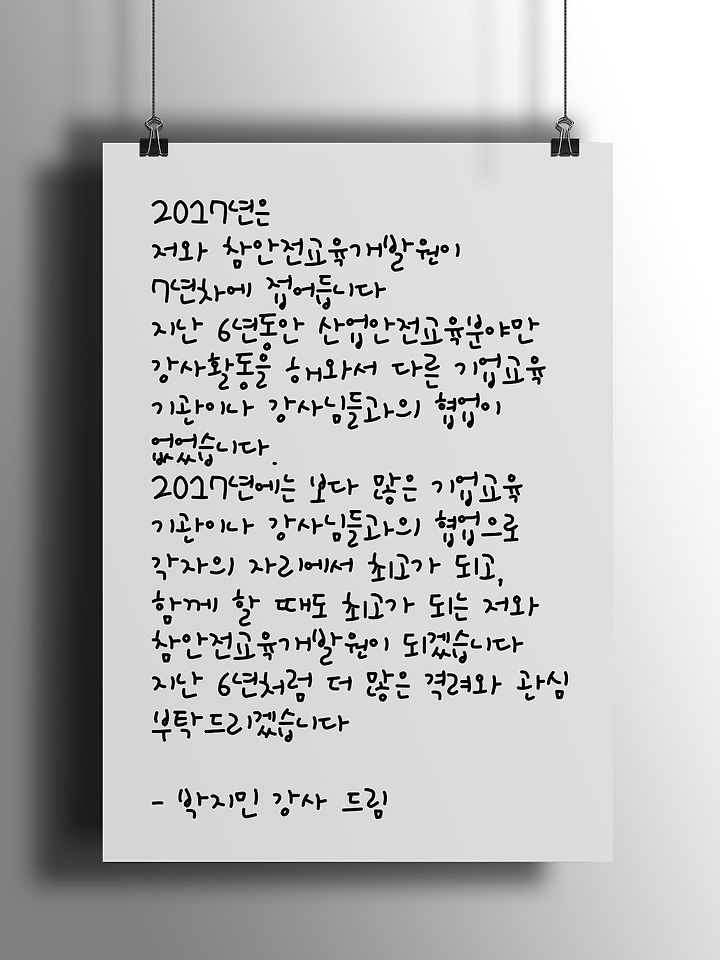 2017년은
저와 참안전교육개발원이
7년차에 접어듭니다
지난 6년동안 산업안전교육분야만
강사활동을 해와서 다른 기업교육
기관이나 강사님들과의 협업이
없었습니다.
2017년에는 보다 많은 기업교육
기관이나 강사님들과의 협업으로
각자의 자리에서 최고가 되고,
함께 할 때도 최고가 되는 저와
참안전교육개발원이 되겠습니다
지난 6년처럼 더 많은 격려와 관심
부탁드리겠습니다
- 박지민 강사 드림